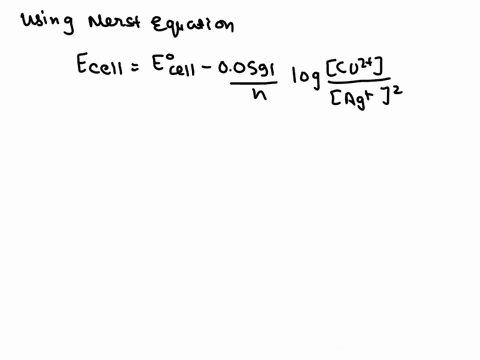 Using Nerst Equation
Ecell = E°cell - 0.0591/n log [Cu2+]/[Ag+]2